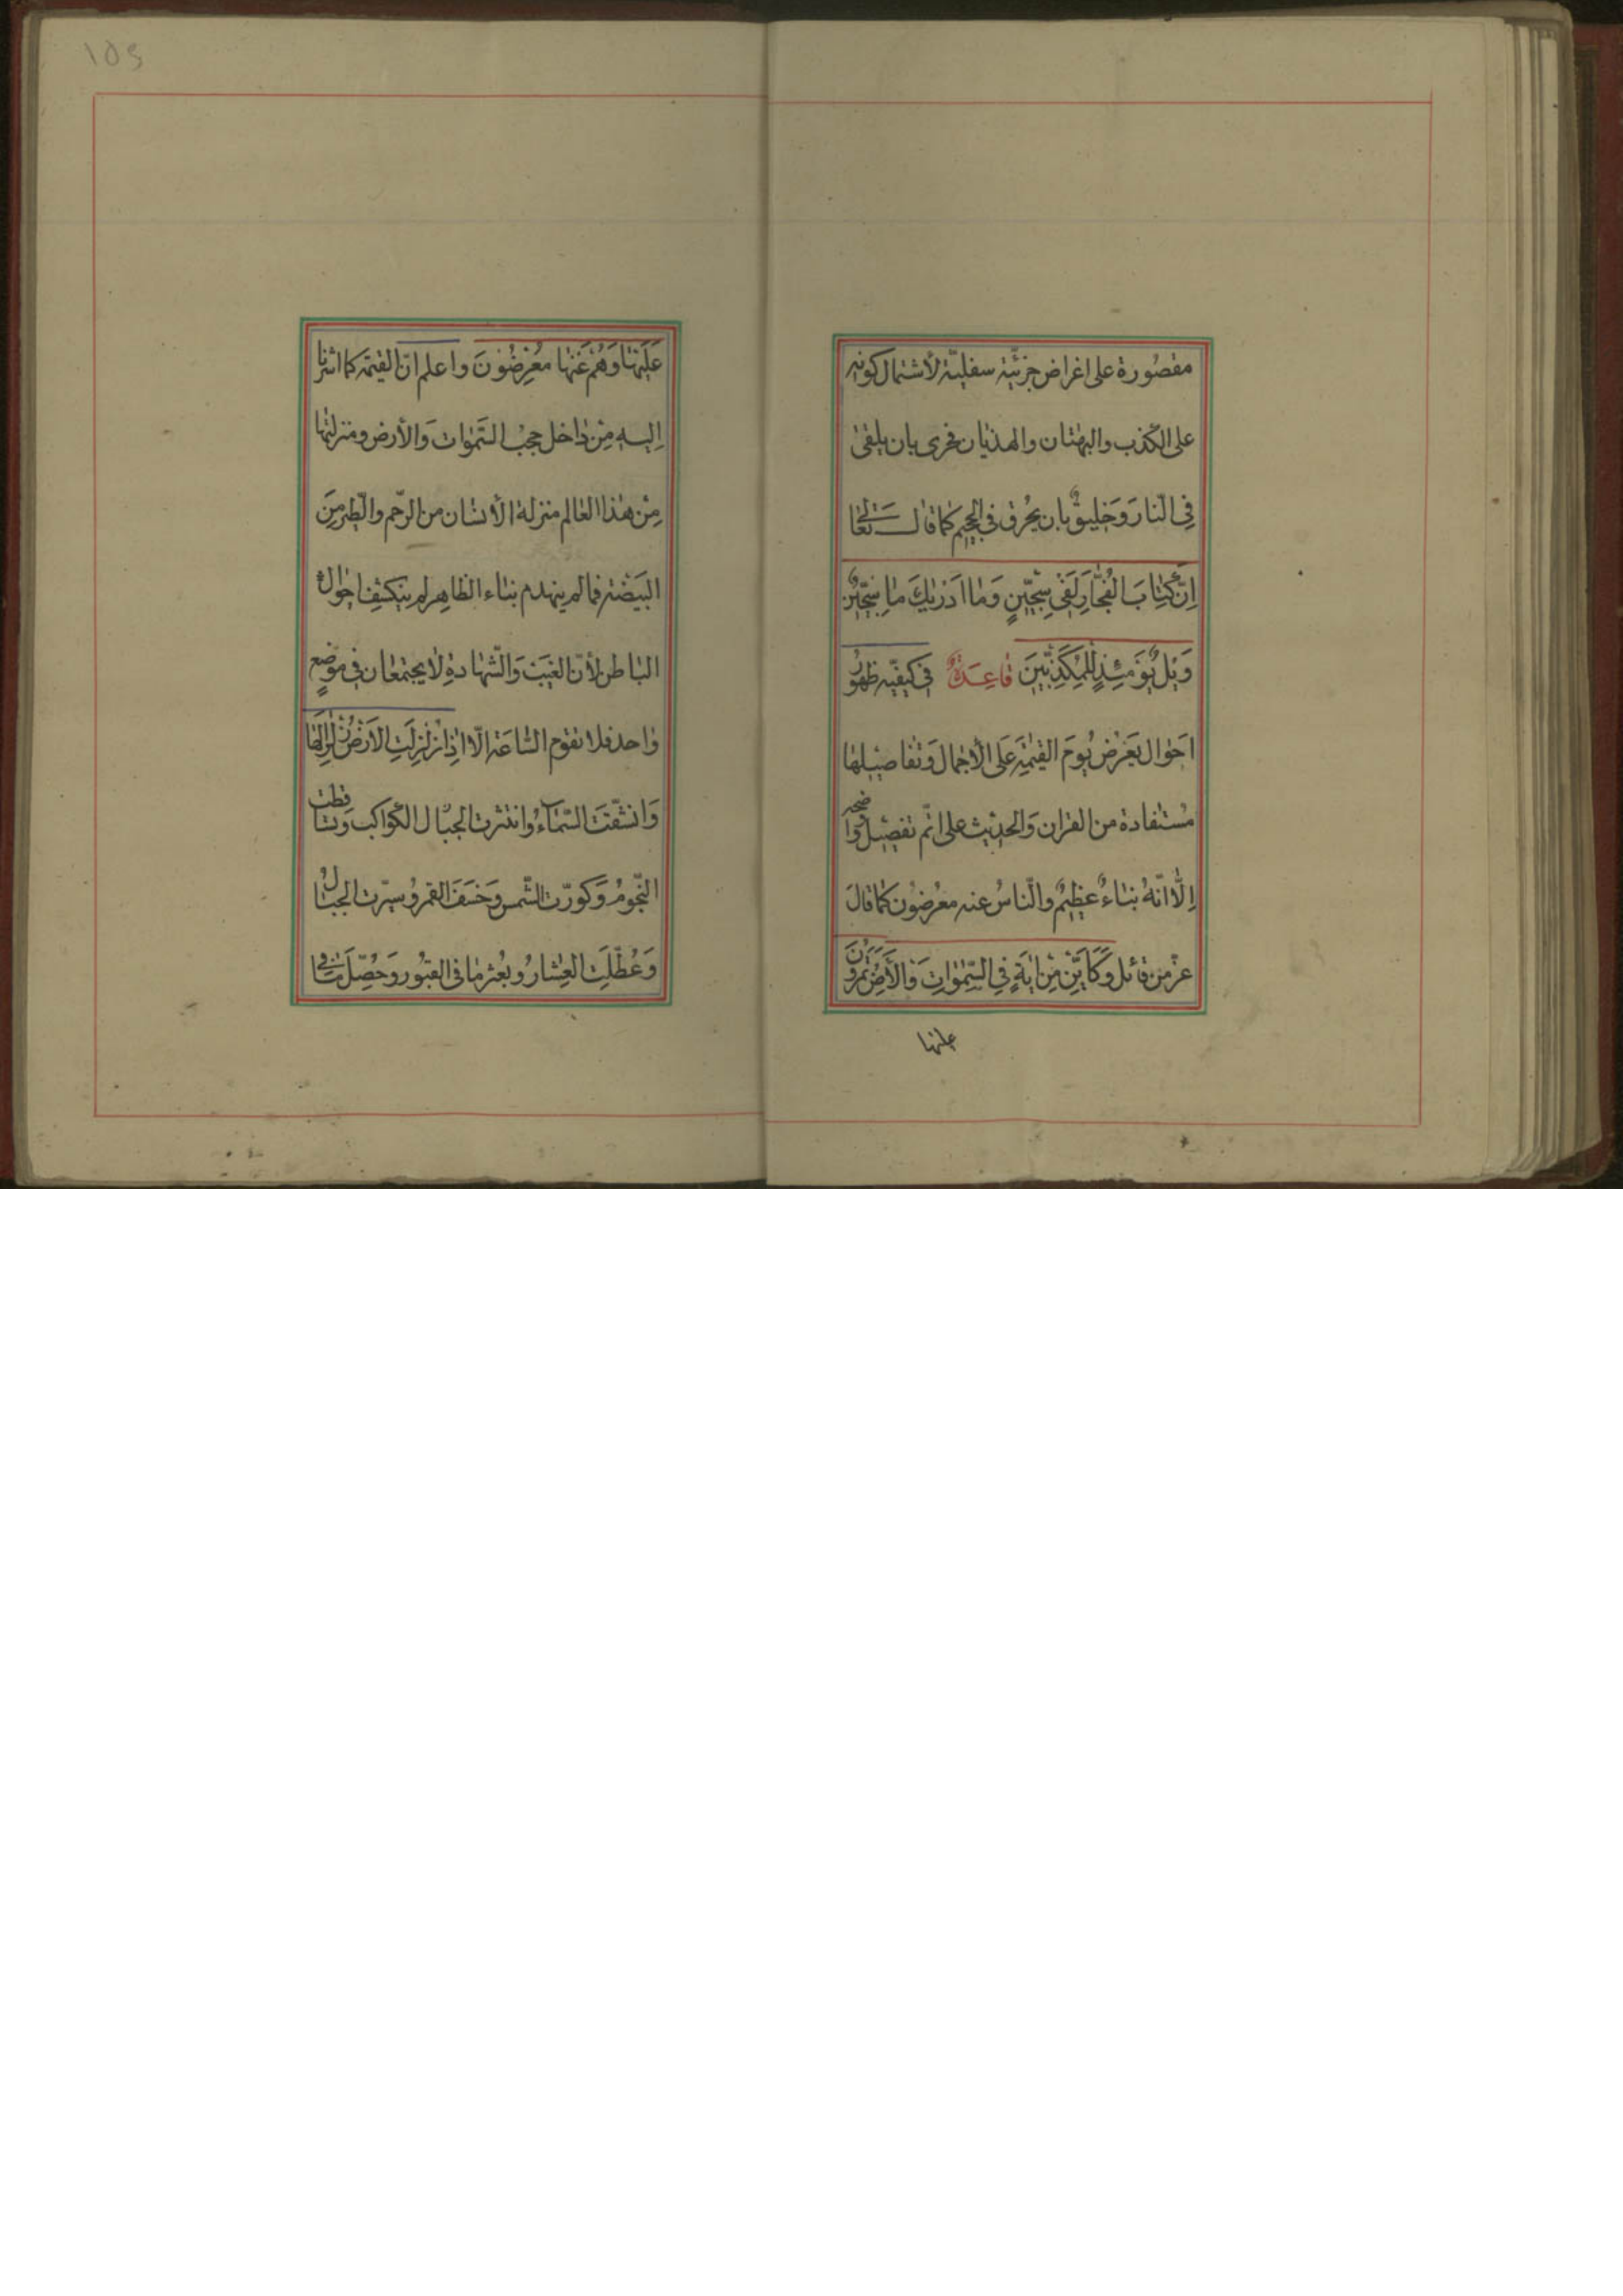 مقصُورة على اغراض جزئيّة سفليّة لأشتمال كونه
على الكذب والبهتان والهذيان فحرى بان يلقى
فِى النّار وَخليقٌ بان يُحرق فى الجحِيم كما قال تعالى
اِنَّ كِتابَ الفُجّارِ لَفى سِجّينٍ وَما اَدَرٰيكَ ما سِجّينٌ
وَيلٌ يَومَئِذٍ لِلمُكَذِّبينَ قاعِدَةٌ فى كيفيّه ظهُور
احَوال يَعَرُض يَومَ القيٰمَةِ عَلى الأجمال وَتفاصيلها
مُستفادة من القران وَالحديث على اتمّ تفصيل واضحه
اِلّا انّهُ بناءٌ عظيمٌ والنّاسُ عنه معُرضُون كما قالَ
عزّ من قائل وَكَايَّن مِن ايَةٍ فِى السّمٰوٰاتِ وَالأرضِ يَمرّوُنَ
عليها
١٥٥
عَلَيهٰا وَهُم عَنها مُعرِضُونَ واعلم انّ القيٰمه كما اشرنا
اِليه مِن داخل حجبُ السَّمٰوات وَالأرض ومنزلتها
مِن هذا العالم منزلة الأنسان من الرّحم والطير مِنَ
البَيضَة فما لم ينهدم بناء الظاهِر لم ينكشِف احوالُ
الباطن لأنّ الغيبَ وَالشّهادةِ لا يجتمعان فى مَوضعٍ
واحد فلا تقوم السّاعَة الّا اِذا زُلزِلَتِ الاَرَضُ زِلزالَها
وَانشقّتَ السّماءُ وانتثرت الجبُال الكواكب وَتساقطت
النّجومُ وَكورّت الشّمس وَخسَفَ القمر وُسيّرت الجبالُ
وَعُطّلَتِ العِشارُ وبُعثر ما فى القبُور وَحُصّلَ ما فى